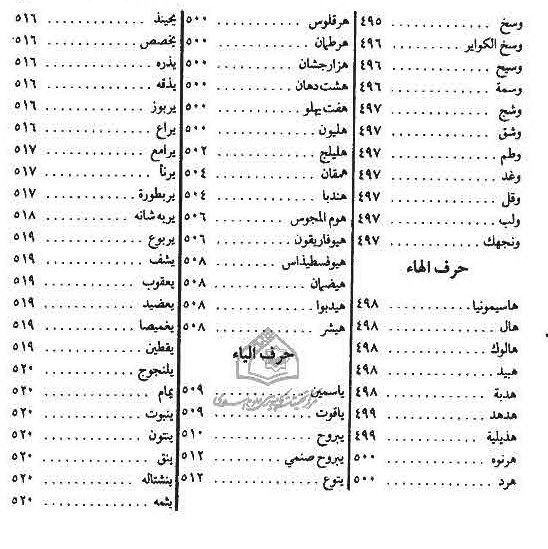 وسخ ............ ٤٩٥
وسخ الكواير ...... ٤٩٦
وسيح ............ ٤٩٦
وسمة ............ ٤٩٦
وشج ............ ٤٩٧
وشق ............ ٤٩٧
وطم ............ ٤٩٧
وغد ............ ٤٩٧
وقل ............ ٤٩٧
ولب ............ ٤٩٧
ونجهك ............ ٤٩٧
حرف الهاء
هاسيمونيا ............ ٤٩٨
هال ............ ٤٩٨
هالوك ............ ٤٩٨
هبيد ............ ٤٩٨
هدبة ............ ٤٩٨
هدهد ............ ٤٩٩
هذيلية ............ ٤٩٩
هرنوه ............ ٥٠٠
هرد ............ ٥٠٠
هرقلوس ............ ٥٠٠
هرطمان ............ ٥٠٠
هزارجشان ............ ٥٠٠
هشت دهان ............ ٥٠٠
هفت يهلو ............ ٥٠٠
هليون ............ ٥٠٠
هليلج ............ ٥٠٢
همقان ............ ٥٠٤
هندبا ............ ٥٠٤
هوم المجوس ............ ٥٠٦
هيوفاريقون ............ ٥٠٦
هيوفسطيذاس ............ ٥٠٨
هيضمان ............ ٥٠٨
هيدبوا ............ ٥٠٨
هيشر ............ ٥٠٨
حرف الياء
ياسمين ............ ٥٠٩
ياقوت ............ ٥٠٩
يبروح ............ ٥١٠
يبروح صنمي ............ ٥١٢
يتوع ............ ٥١٢
يجينذ ............ ٥١٦
يخصص ............ ٥١٦
يذره ............ ٥١٦
يذقه ............ ٥١٦
يربوز ............ ٥١٦
يراع ............ ٥١٦
يرامع ............ ٥١٧
يرنا ............ ٥١٧
يربطورة ............ ٥١٧
يربه شانه ............ ٥١٨
يربوع ............ ٥١٩
يشف ............ ٥١٩
يعقوب ............ ٥١٩
يعضيد ............ ٥١٩
يغميصا ............ ٥١٩
يقطين ............ ٥١٩
يلنجوج ............ ٥٢٠
يمام ............ ٥٢٠
ينبوت ............ ٥٢٠
ينتون ............ ٥٢٠
ينق ............ ٥٢٠
ينشتاله ............ ٥٢٠
يثمه ............ ٥٢٠